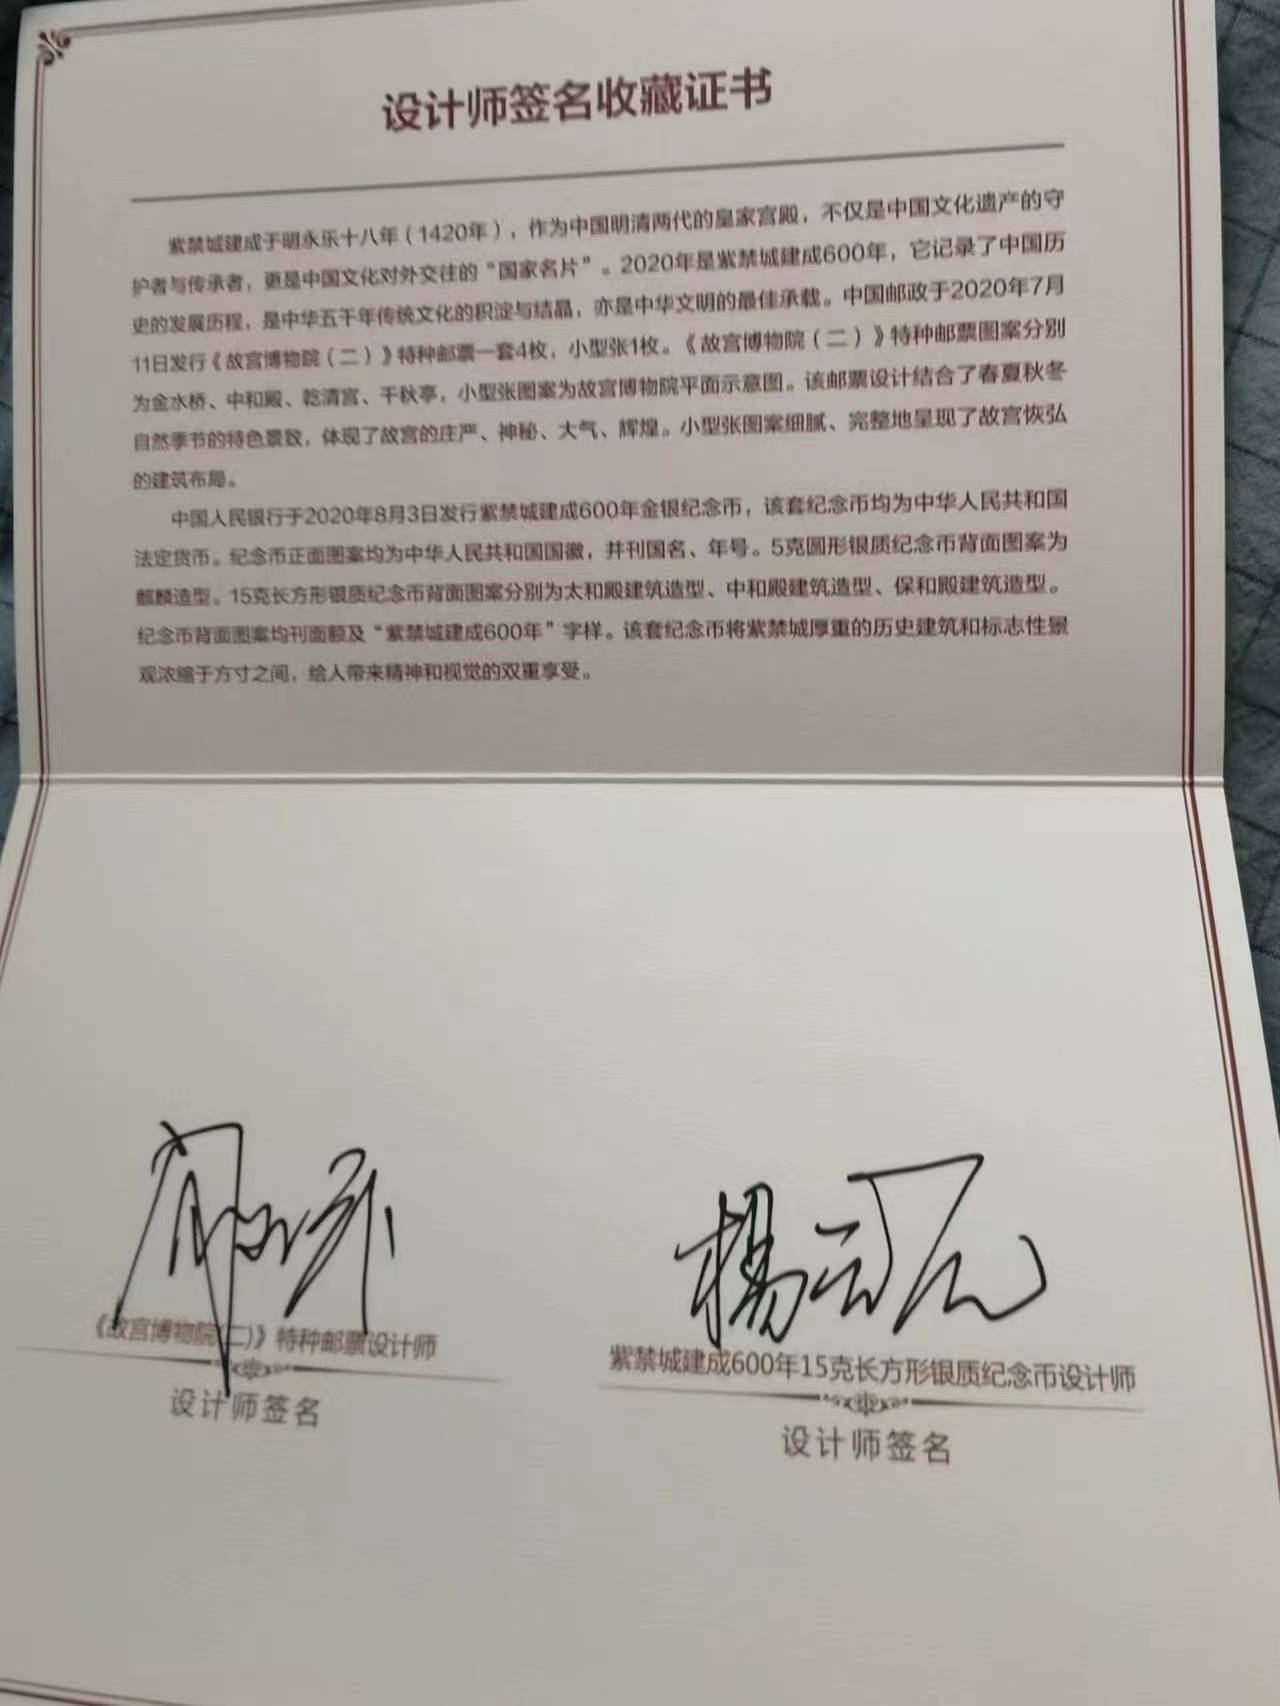 设计师签名收藏证书
紫禁城建成于明永乐十八年（1420年），作为中国明清两代的皇家宫殿，不仅是中国文化遗产的守
护者与传承者，更是中国文化对外交往的“国家名片”。2020年是紫禁城建成600年，它记录了中国历
史的发展历程，是中华五千年传统文化的积淀与结晶，亦是中华文明的最佳承载。中国邮政于2020年7月
11日发行《故宫博物院（二）》特种邮票一套4枚，小型张1枚。《故宫博物院（二）》特种邮票图案分别
为金水桥、中和殿、乾清宫、千秋亭，小型张图案为故宫博物院平面示意图。该邮票设计结合了春夏秋冬
自然季节的特色景致，体现了故宫的庄严、神秘、大气、辉煌。小型张图案细腻、完整地呈现了故宫恢弘
的建筑布局。
中国人民银行于2020年8月3日发行紫禁城建成600年金银纪念币，该套纪念币均为中华人民共和国
法定货币。纪念币正面图案均为中华人民共和国国徽，并刊国名、年号。5克圆形银质纪念币背面图案为
麒麟造型。15克长方形银质纪念币背面图案分别为太和殿建筑造型、中和殿建筑造型、保和殿建筑造型。
纪念币背面图案均刊面额及“紫禁城建成600年”字样。该套纪念币将紫禁城厚重的历史建筑和标志性景
观浓缩于方寸之间，给人带来精神和视觉的双重享受。
《故宫博物院(二)》特种邮票设计师
设计师签名
紫禁城建成600年15克长方形银质纪念币设计师
设计师签名